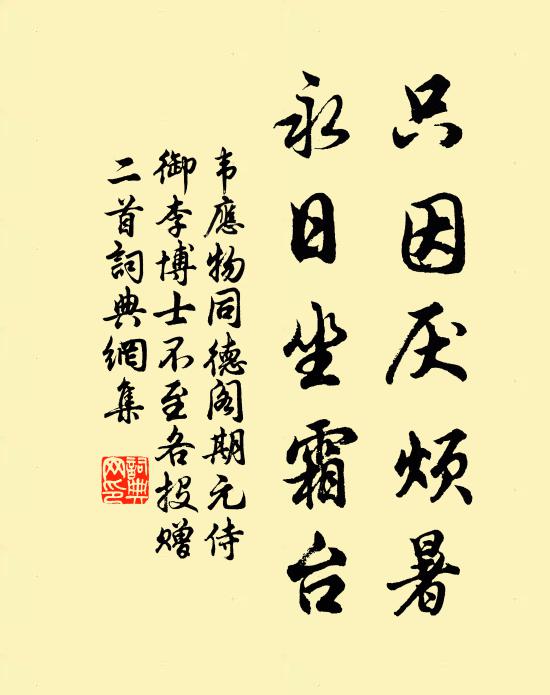 只因厌烦暑
永日坐霜台
韦應物同德阁期元侍
御李博士不至各投赠
二首詞典網集
詞典网印